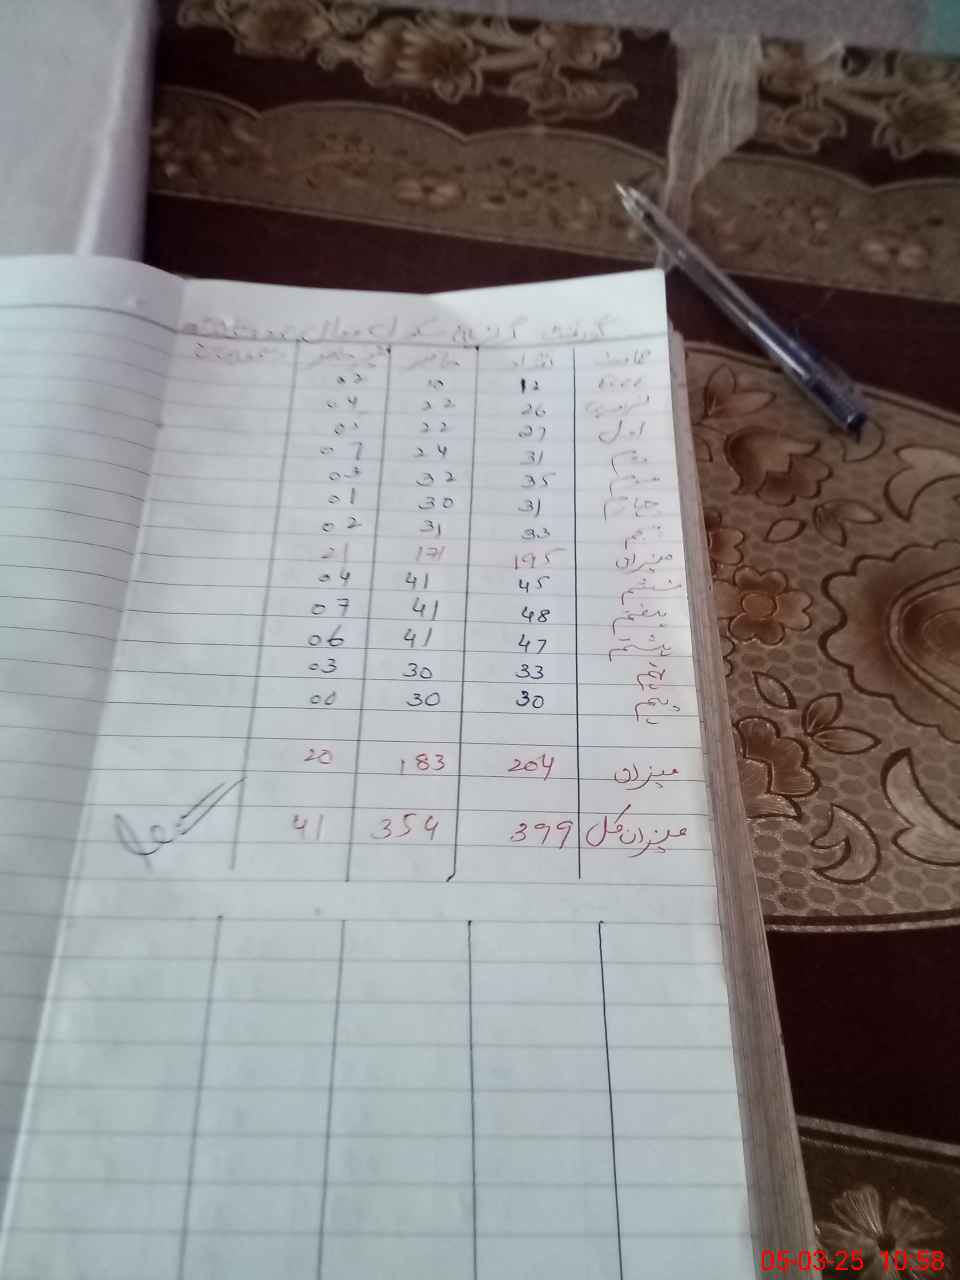 گورنمنٹ گرلز
جماعت تعداد حاضر غیر حاضر
12 10 02
26 22 04
اول 27 22
دوم 31 24 07
سوم 35 32 03
چہارم 31 30 01
پنجم 33 31 02
میزان 195 171 21
ششم 45 41 04
ہفتم 48 41 07
ہشتم 47 41 06
نہم 33 30 03
دہم 30 30 00
میزان 204 183 20
میزان کل 399 354 41
05-03-25 10:58